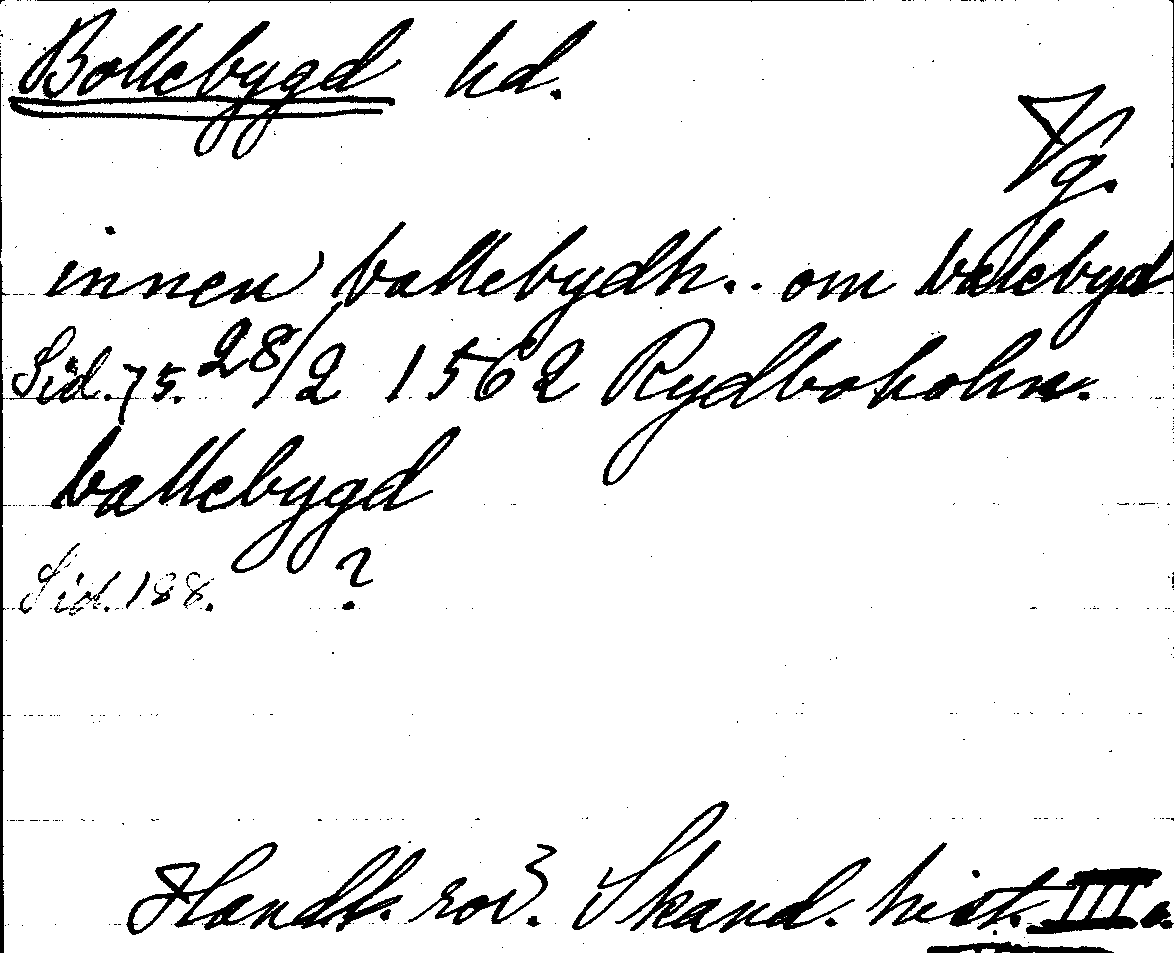 Bollebygd hd.
Vg.
innen ballebydh.. om balebyd
Sid. 75. 28/2 1562 Rydboholm.
ballebygd
Sid. 188. ?
Handl. rör. Skand. hist. III.